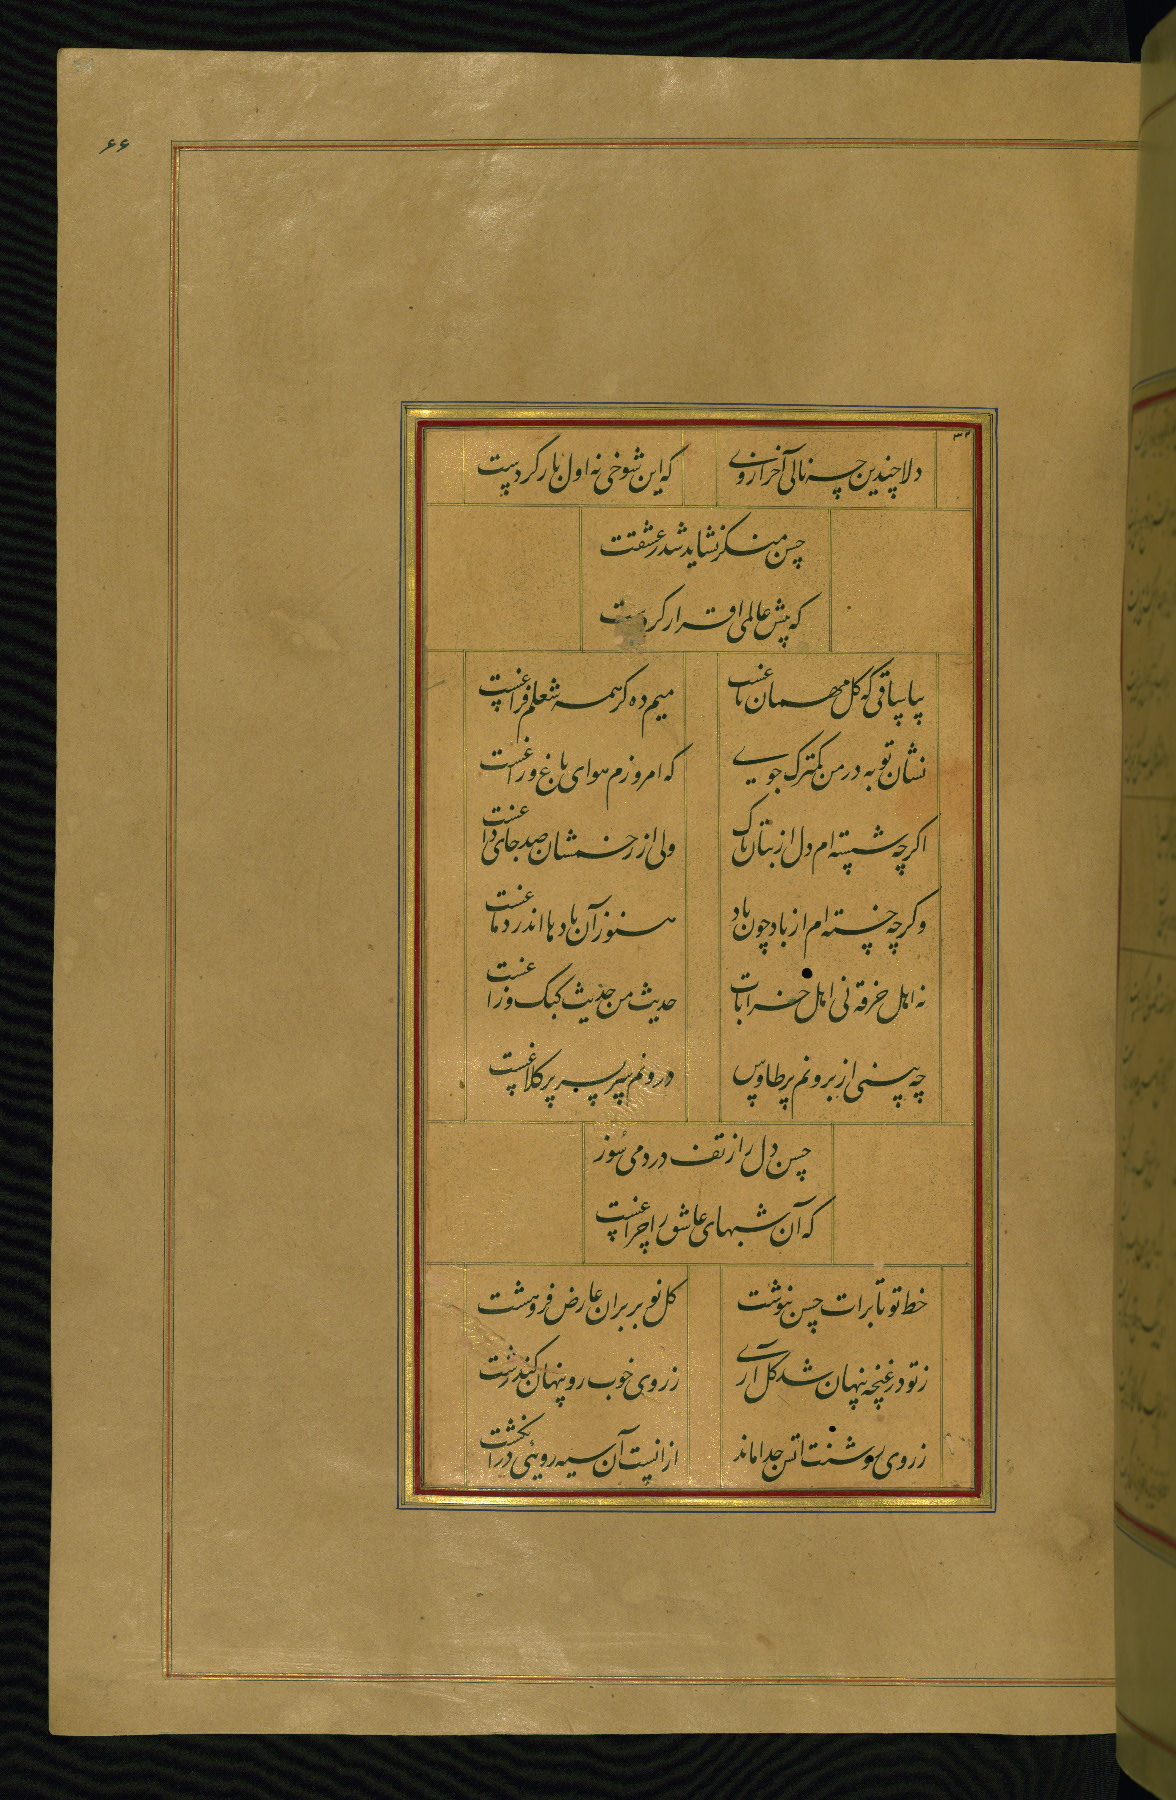 ۶۶
۳۲
دلا چندین چه نالی آخر از وی که این شوخی نه اول بار کردست
حسن منکر نشاید شد ز عشقت
که پیش عالمی اقرار کردست
بیا ساقی که گل مهمان باغست میم ده کز همه شغلم فراغست
نشان توبه در من کمترک جوی که امروزم هوای باغ و راغست
اگرچه شسته‌ام دل از بتان پاک ولی از زخمشان صد جای داغست
وگرچه خسته‌ام از باد چون باد هنوز آن بادها اندر دماغست
نه اهل خرقه نی اهل خرابات حدیث من حدیث کبک و زاغست
چه بینی از برونم پر طاوس درونم بین سر بسر پر کلاغست
حسن دل را ز تف درد می‌سوز
که آن شبهای عاشق را چراغست
خط تو تا برات حسن بنوشت گل نو بر بران عارض فروهشت
ز تو در غنچه پنهان شد گل آری ز روی خوب رو پنهان کند زشت
ز روی روشنت اتش جدا ماند ازانست آن سیه رویئی در انگشت